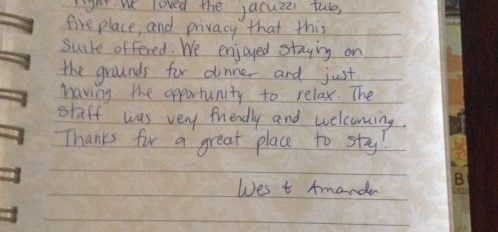 night. We loved the jacuzzi tub,
fireplace, and privacy that this
Suite offered. We enjoyed staying on
the grounds for dinner and just
having the opportunity to relax. The
staff was very friendly and welcoming.
Thanks for a great place to stay!
Wes & Amanda
B